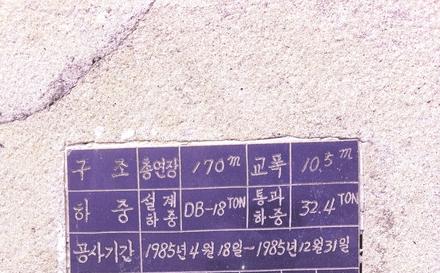 구 조 총연장 170m 교폭 10.5m
하 중 설계하중 DB-18TON 통과하중 32.4TON
공사기간 1985년4월18일~1985년12월31일